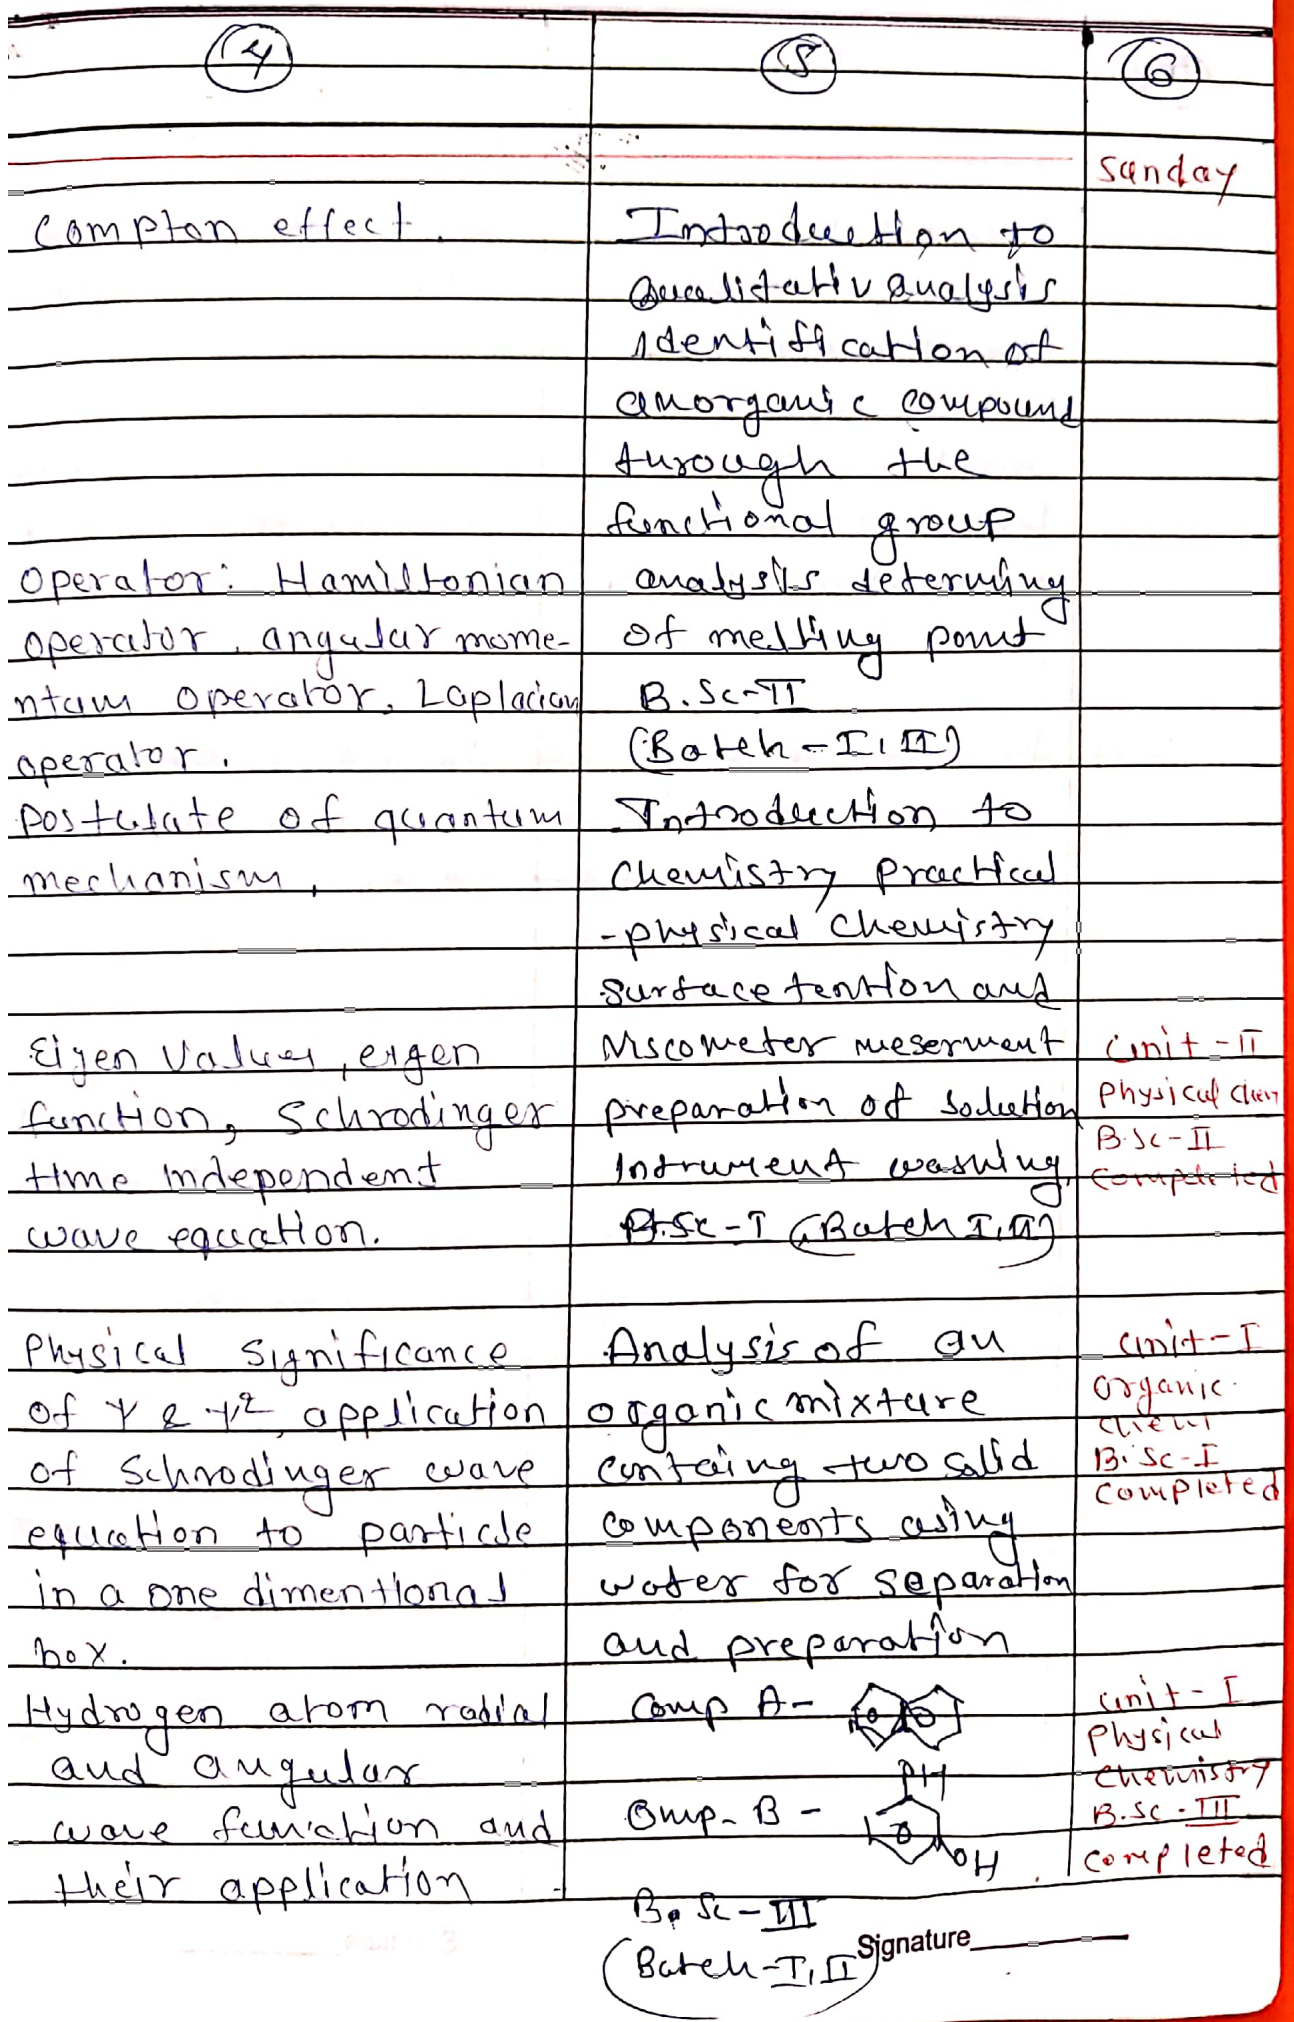 4
5
6
Sunday
Compton effect.
Operator: Hamiltonian
operator, angular mome-
ntum operator, Laplacian
operator.
Postulate of quantum
mechanism,
Eigen values, eigen
function, Schrodinger
time independent
wave equation.
Physical significance
of Ψ & Ψ², application
of Schrodinger wave
equation to particle
in a one dimentional
box.
Hydrogen atom radial
and angular
wave function and
their application
Introduction to
Qualitativ analysis
identification of
anorganic compound
through the
functional group
analysis determing
of melting point
B.Sc-II
(Batch - I, II)
Introduction to
Chemistry practical
-physical chemistry
surface tention and
Viscometer meserment
preparation of solution
Intrument washing,
B.Sc-I (Batch I, II)
Analysis of an
organic mixture
containg two solid
components using
water for separation
and preparation
Comp A-
OH
Comp- B -
OH
B. Sc - III
(Batch - I, II)
unit - II
Physical chem
B.Sc - II
Completed
unit - I
organic
chem
B.Sc - I
completed
unit - I
Physical
chemistry
B.Sc - III
completed
Signature